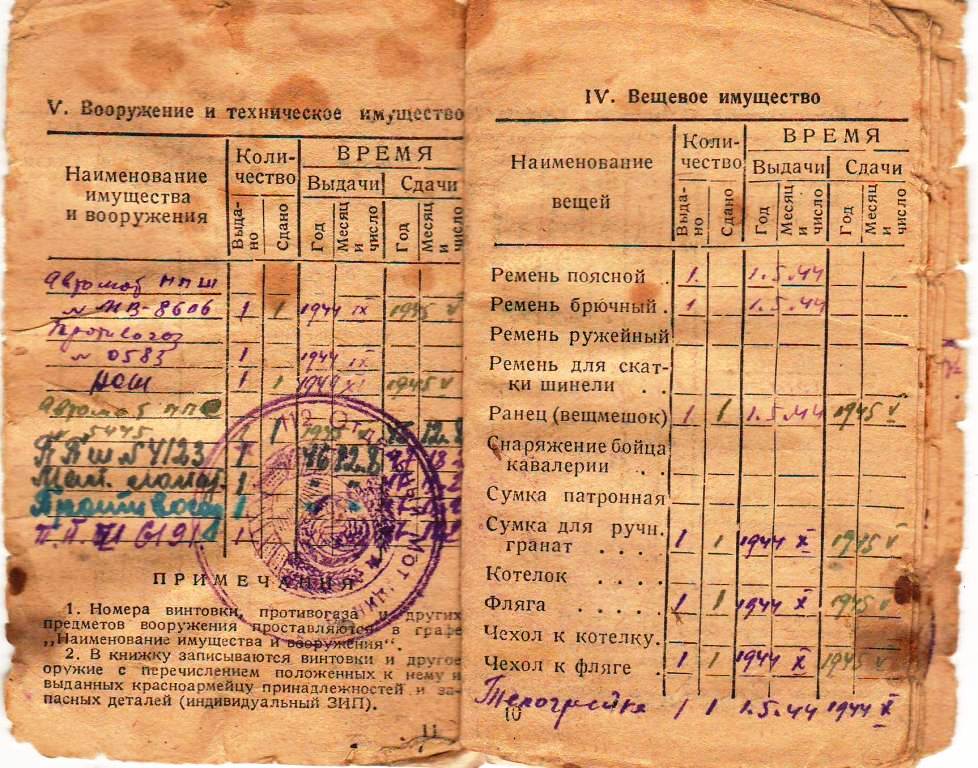 V. Вооружение и техническое имущество
Наименование имущества и вооружения
Коли- чество
ВРЕМЯ
Выдачи Сдачи
Выда- но
Сдано
Год
Месяц и число
Год
Месяц и число
Автомат ППШ
№ МВ-8606 1 1 1944 IX 1945 V
Противогаз
№ 0583 1 1944 IX
1 1 1945 V
Автомат
№ 5445 1
ППШ № 4123
1
Противогаз 1
6191
ПРИМЕЧАНИЯ
1. Номера винтовки, противогаза и других
предметов вооружения проставляются в графе
„Наименование имущества и вооружения".
2. В книжку записываются винтовки и другое
оружие с перечислением положенных к нему и
выданных красноармейцу принадлежностей и за-
пасных деталей (индивидуальный ЗИП).
11
IV. Вещевое имущество
Наименование вещей
Коли- чество
ВРЕМЯ
Выдачи Сдачи
Выда- но
Сдано
Год
Месяц и число
Год
Месяц и число
Ремень поясной . 1. 1.5.44
Ремень брючный . 1. 1.5.44
Ремень ружейный
Ремень для скат-
ки шинели . .
Ранец (вещмешок) 1 1 1.5.44 1945 V
Снаряжение бойца
кавалерии . .
Сумка патронная
Сумка для ручн.
гранат . . . . 1 1 1944 X 1945 V
Котелок . . . .
Фляга . . . . . 1 1 1944 X 1945 V
Чехол к котелку.
Чехол к фляге . 1 1 1944 X 1945 V
Телогрейка 1 1 1.5.44 1944 X
10